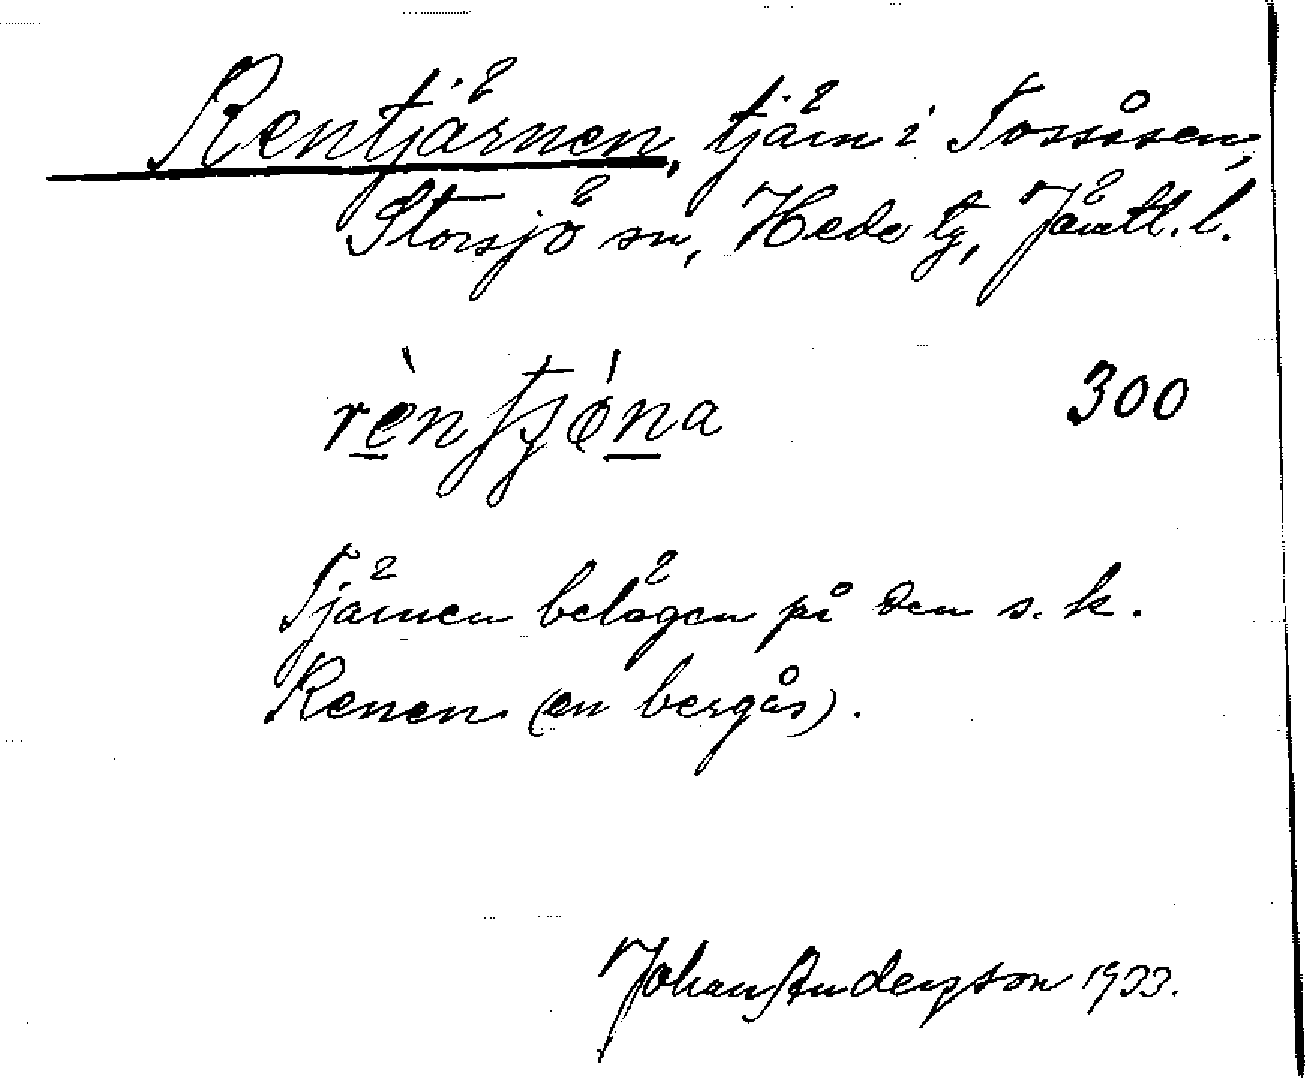 Rentjärnen, tjärn i Tossåsen,
Storsjö sn, Hede tg, Jämtl. l.
300
Tjärnen belägen på den s. k.
Renen (en bergås).
Johan Anderson 1933.